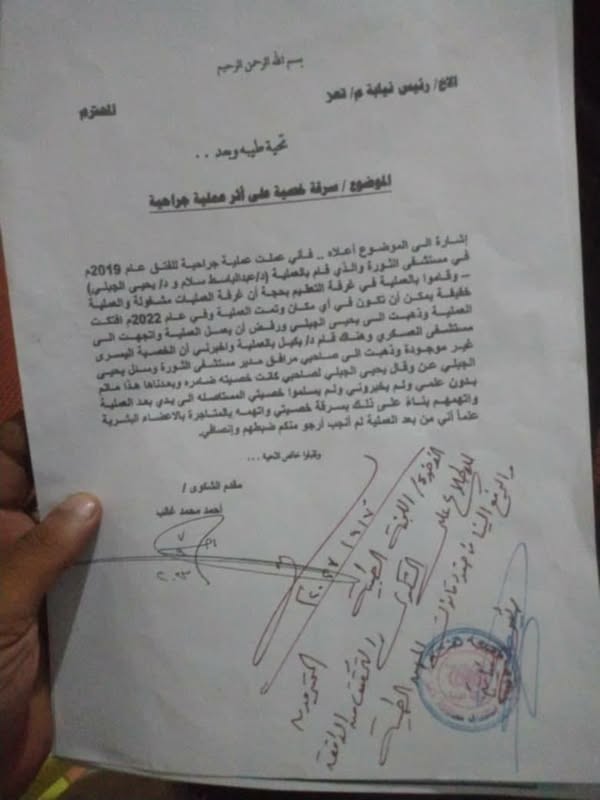 بسم الله الرحمن الرحيم
الاخ/ رئيس نيابة م/ تعز
المحترم
تحية طيبه وبعد . .
الموضوع / سرقة خصية على أثر عملية جراحية
إشارة الى الموضوع أعلاه .. فأني عملت عملية جراحية للفتق عام 2019م
في مستشفى الثورة والذي قام بالعملية (د/عبدالباسط سلام و د/ يحيى الجبلي)
– وقاموا بالعملية في غرفة التعقيم بحجة أن غرفة العمليات مشغولة والعملية
خفيفة يمكن أن تكون في أي مكان وتمت العملية وفي عام 2022م افتكت
العملية وذهبت الى يحيى الجبلي ورفض أن يعمل العملية واتجهت الى
مستشفى العسكري وهناك قام د/ بكيل بالعملية واخبرني أن الخصية اليسرى
غير موجودة وذهبت الى صاحبي مرافق مدير مستشفى الثورة وسئل يحيى
الجبلي عن وقال يحيى الجبلي لصاحبي كانت خصيته ضامره وبعدناها هذا ماتم
بدون علمي ولم يخبروني ولم يسلموا خصيتي المستاصله الى يدي بعد العملية
واتهمهم بناءً على ذلك بسرقة خصيتي واتهمه بالمتاجرة بالاعضاء البشرية
علماً أني من بعد العملية لم أنجب أرجو منكم ضبطهم وإنصافي.
وتقبلوا خالص التحية ...
مقدم الشكوى /
أحمد محمد غالب
الاخوة/ اللجنة الطبية
للاطلاع على الشكوى